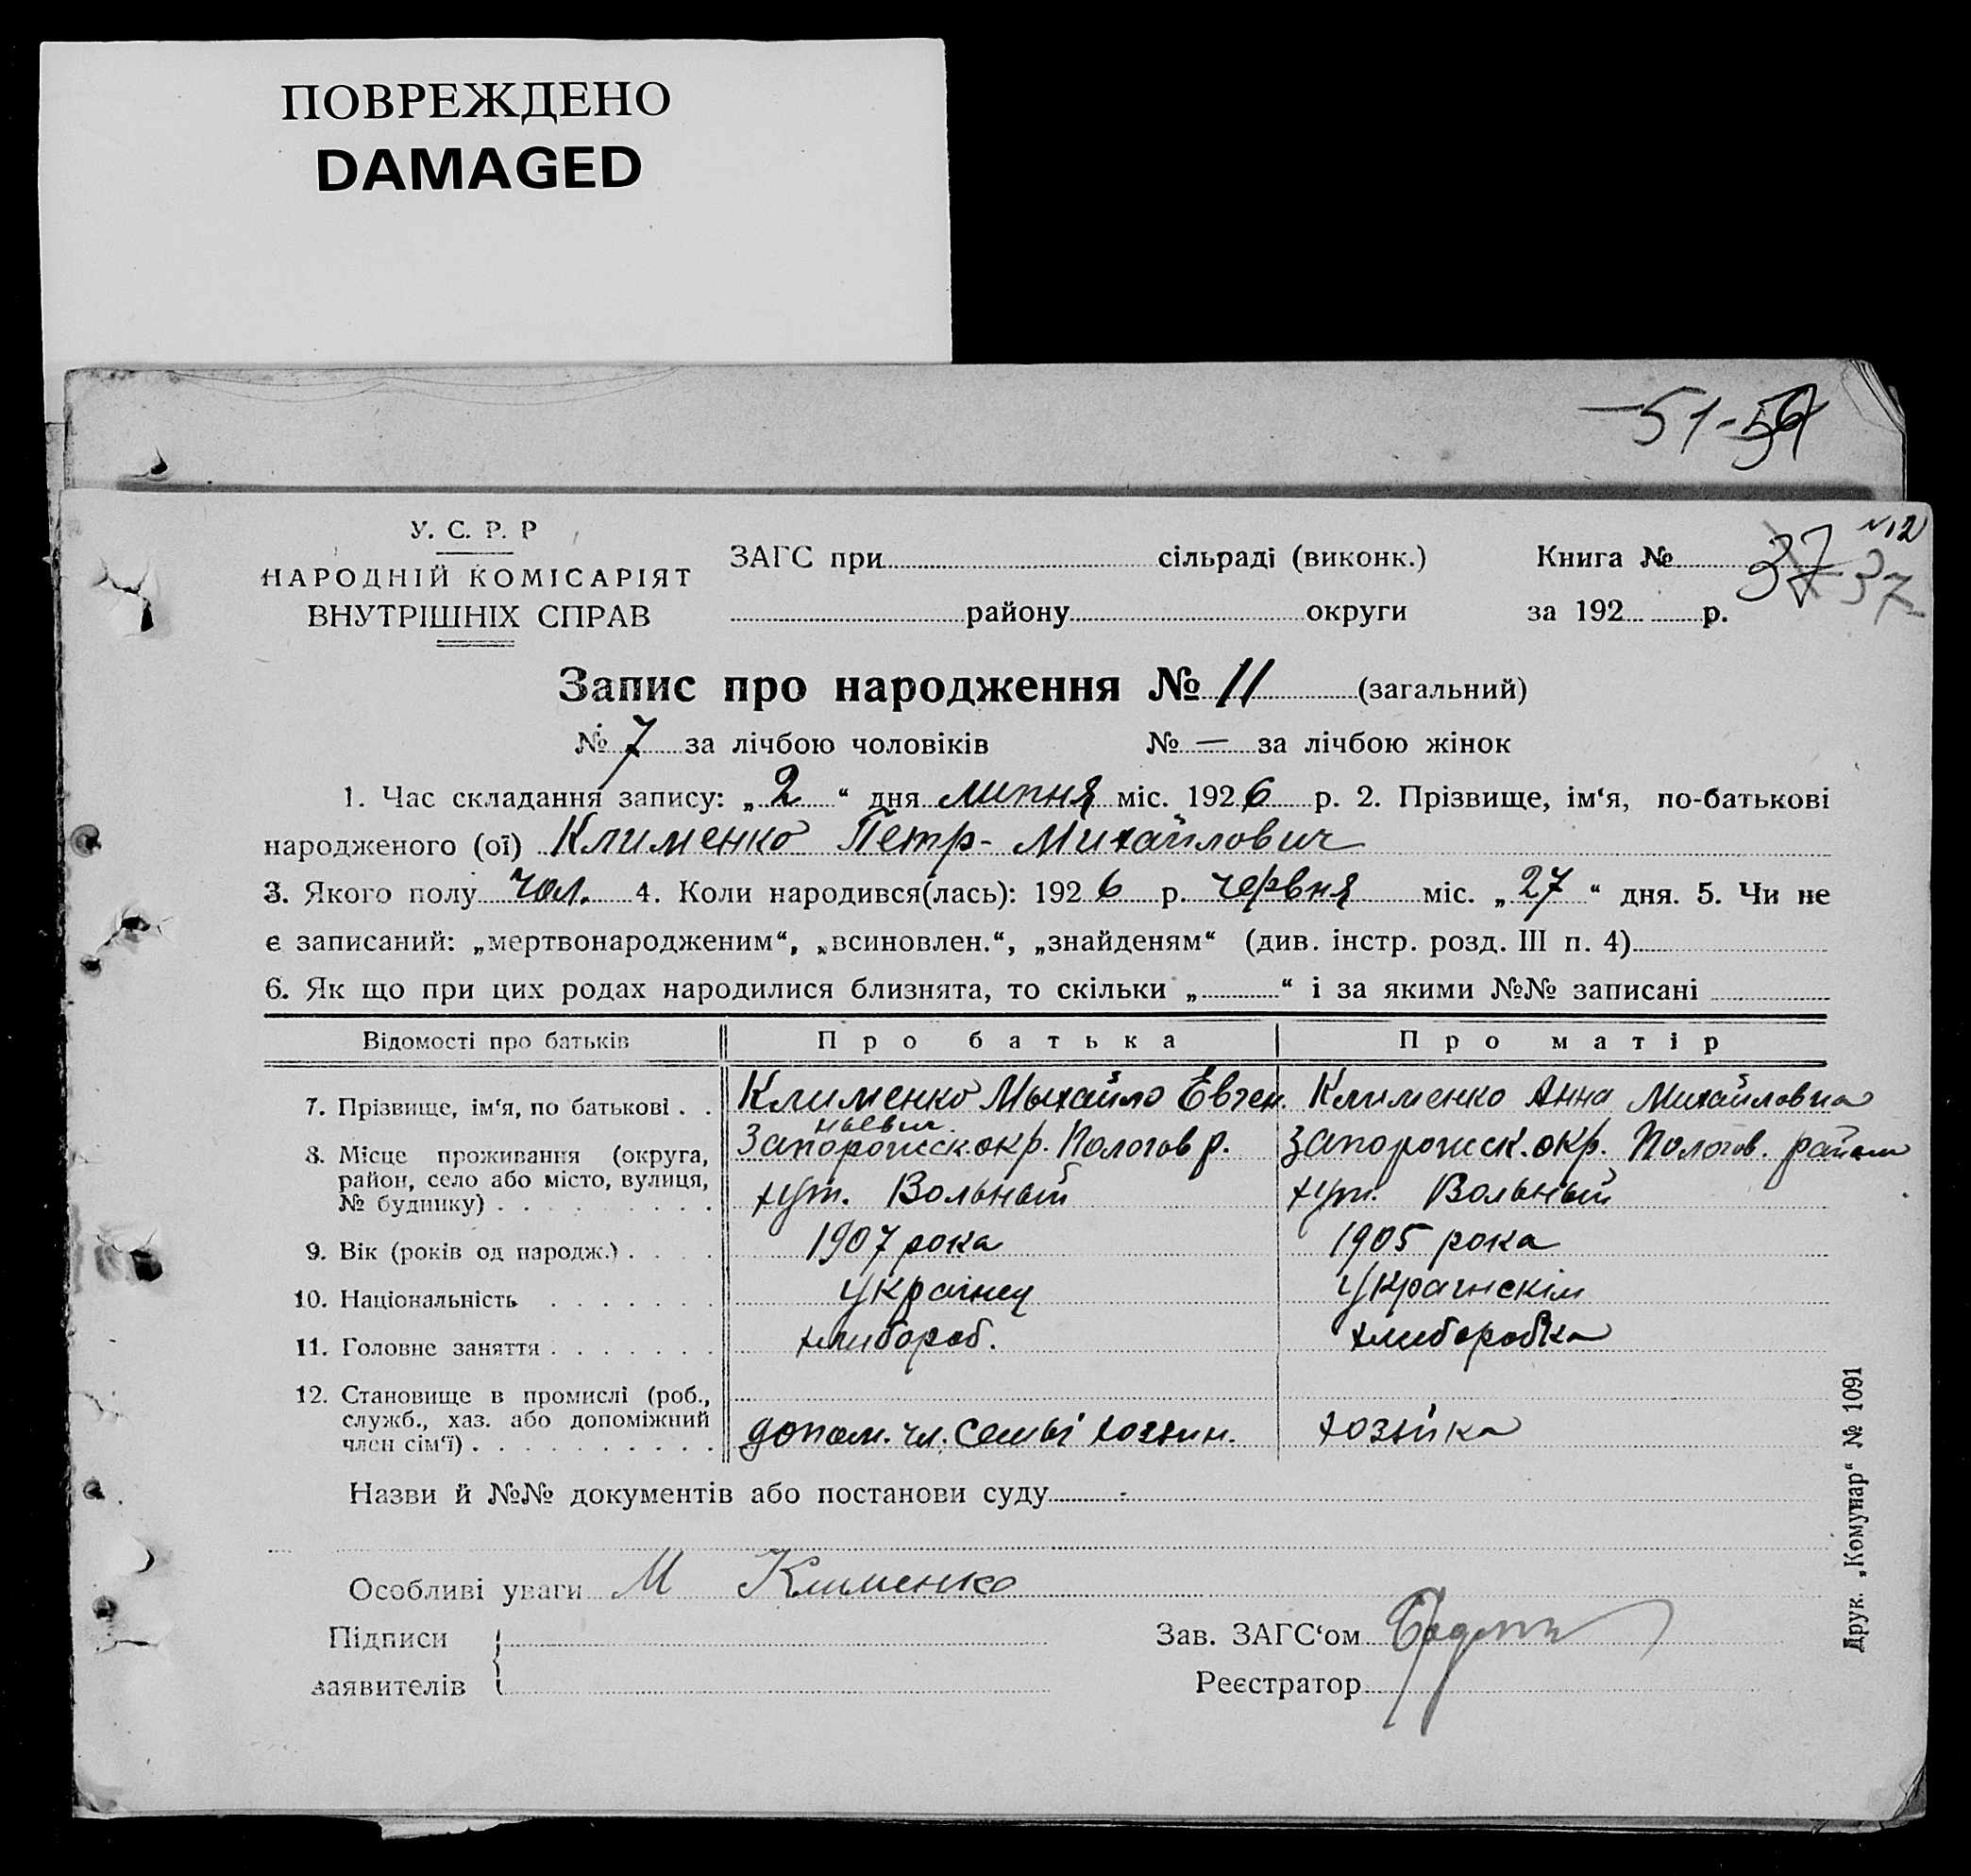 ПОВРЕЖДЕНО
DAMAGED
—51-
У. С. Р. Р
НАРОДНІЙ КОМІСАРІЯТ
ВНУТРІШНІХ СПРАВ
ЗАГС при сільраді (виконк.)
району округи
Книга №
за 192 р.
37
№12
37
Запис про народження № 11 (загальний)
№ 7 за лічбою чоловіків № — за лічбою жінок
1. Час складання запису: „2“ дня липня міс. 1926 р. 2. Прізвище, ім‘я, по-батькові
народженого (ої) Клименко Петр- Михайлович
3. Якого полу чол. 4. Коли народився(лась): 1926 р. червня міс. „27“ дня. 5. Чи не
є записаний: „мертвонародженим“, „всиновлен.“, „знайденям“ (див. інстр. розд. III п. 4)
6. Як що при цих родах народилися близнята, то скільки „ “ і за якими №№ записані
Відомості про батьків Про батька Про матір
7. Прізвище, ім‘я, по батькові . . Клименко Мыхайло Евген. Клименко Анна Михайловна
8. Місце проживання (округа, район, село або місто, вулиця, № будинку) . . . . . . . . .
Запорожск. окр. Пологов р. Запорожск. окр. Пологов. район
хут. Вольный хут. Вольный
9. Вік (років од народж.) . . . . 1907 рока 1905 рока
10. Національність . . . . . . . українец
11. Головне заняття . . . . . . . хлибороб. хлиборобка
12. Становище в промислі (роб., служб., хаз. або допоміжний член сім‘ї) . . . . . . . . . .
допом. чл. семьі хозяин. хозяйка
Назви й №№ документів або постанови суду -
Особливі уваги М Клименко
Підписи
заявителів
Зав. ЗАГС‘ом
Реєстратор
Друк. „Комунар“ № 1091